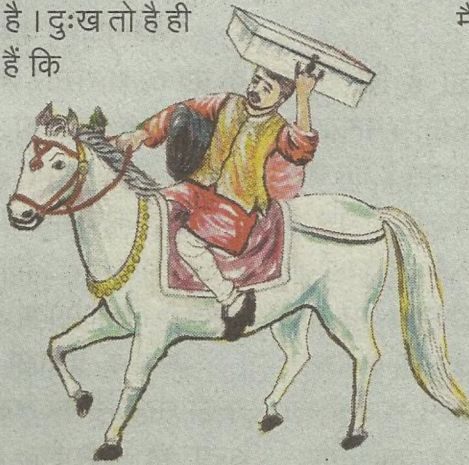 है । दुःख तो है ही
हैं कि